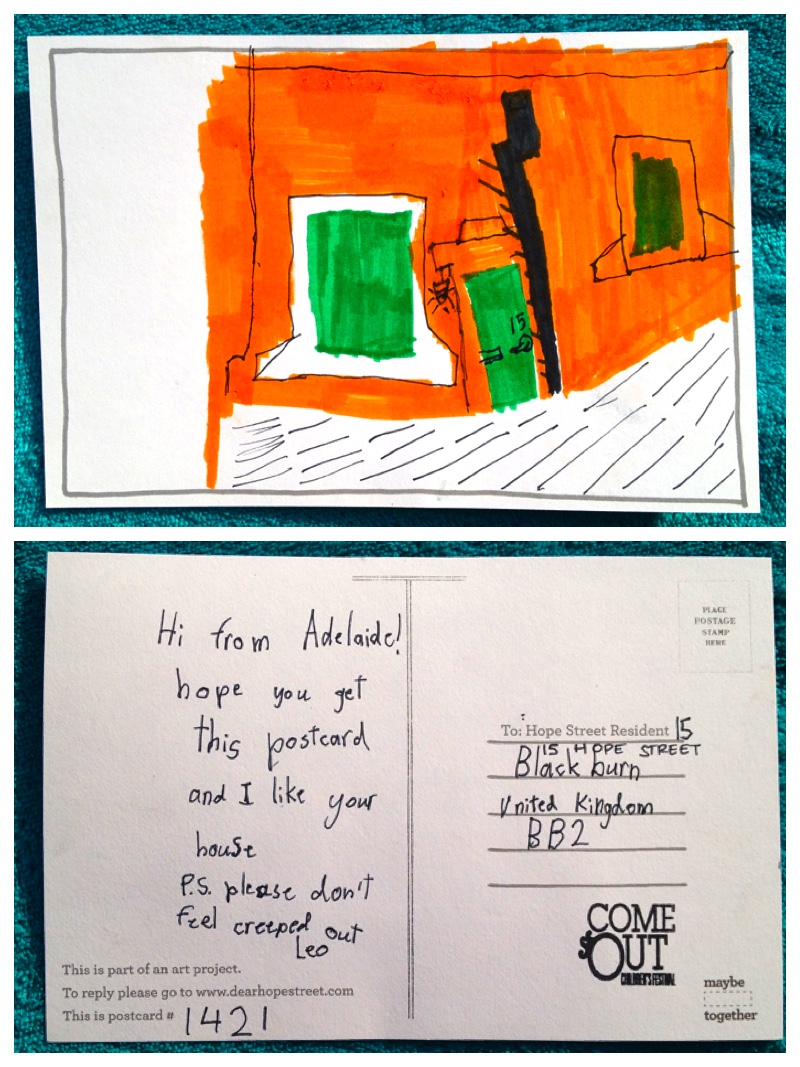 15
Hi from Adelaide!
hope you get
this postcard
and I like your
house
P.S. please don't
feel creeped out
Leo
This is part of an art project.
To reply please go to www.dearhopestreet.com
This is postcard # 1421
PLACE
POSTAGE
STAMP
HERE
To: Hope Street Resident 15
15 HOPE STREET
Blackburn
United Kingdom
BB2
COME
OUT
CHILDREN'S FESTIVAL
maybe
together